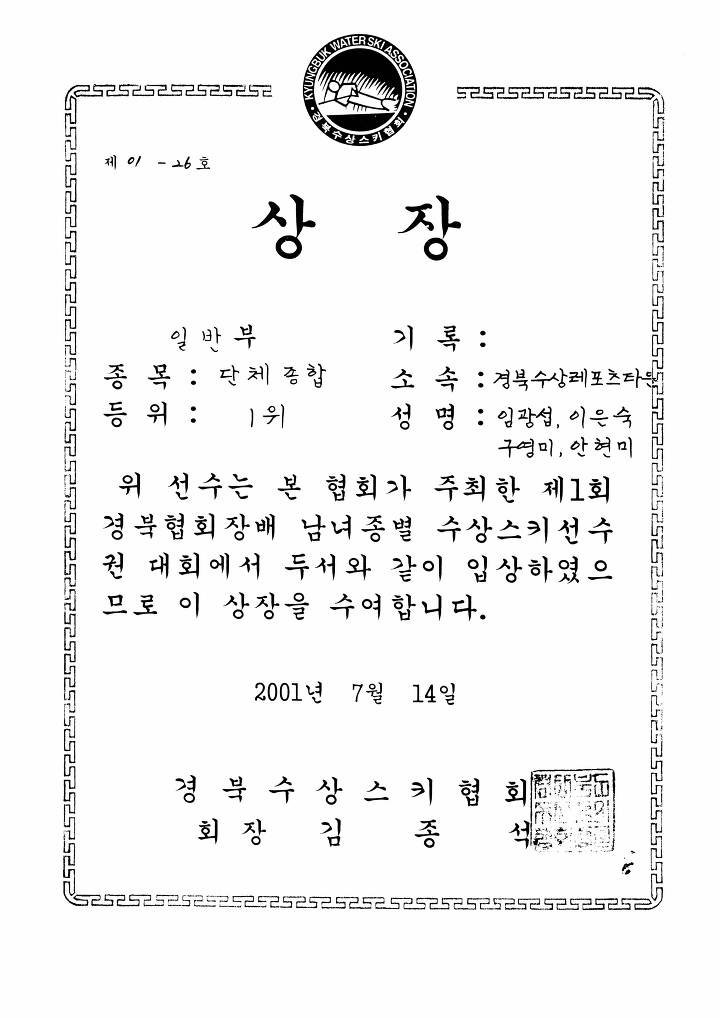 KYUNGBUK WATER SKI ASSOCIATION
경북수상스키협회
제 01 - 26 호
상 장
일반부 기 록 :
종 목 : 단체종합 소 속 : 경북수상레포츠타운
등 위 : 1위 성 명 : 임광섭, 이은숙
구영미, 안현미
위 선수는 본 협회가 주최한 제1회
경북협회장배 남녀종별 수상스키선수
권 대회에서 두서와 같이 입상하였으
므로 이 상장을 수여합니다.
2001년 7월 14일
경 북 수 상 스 키 협 회
회 장 김 종 석